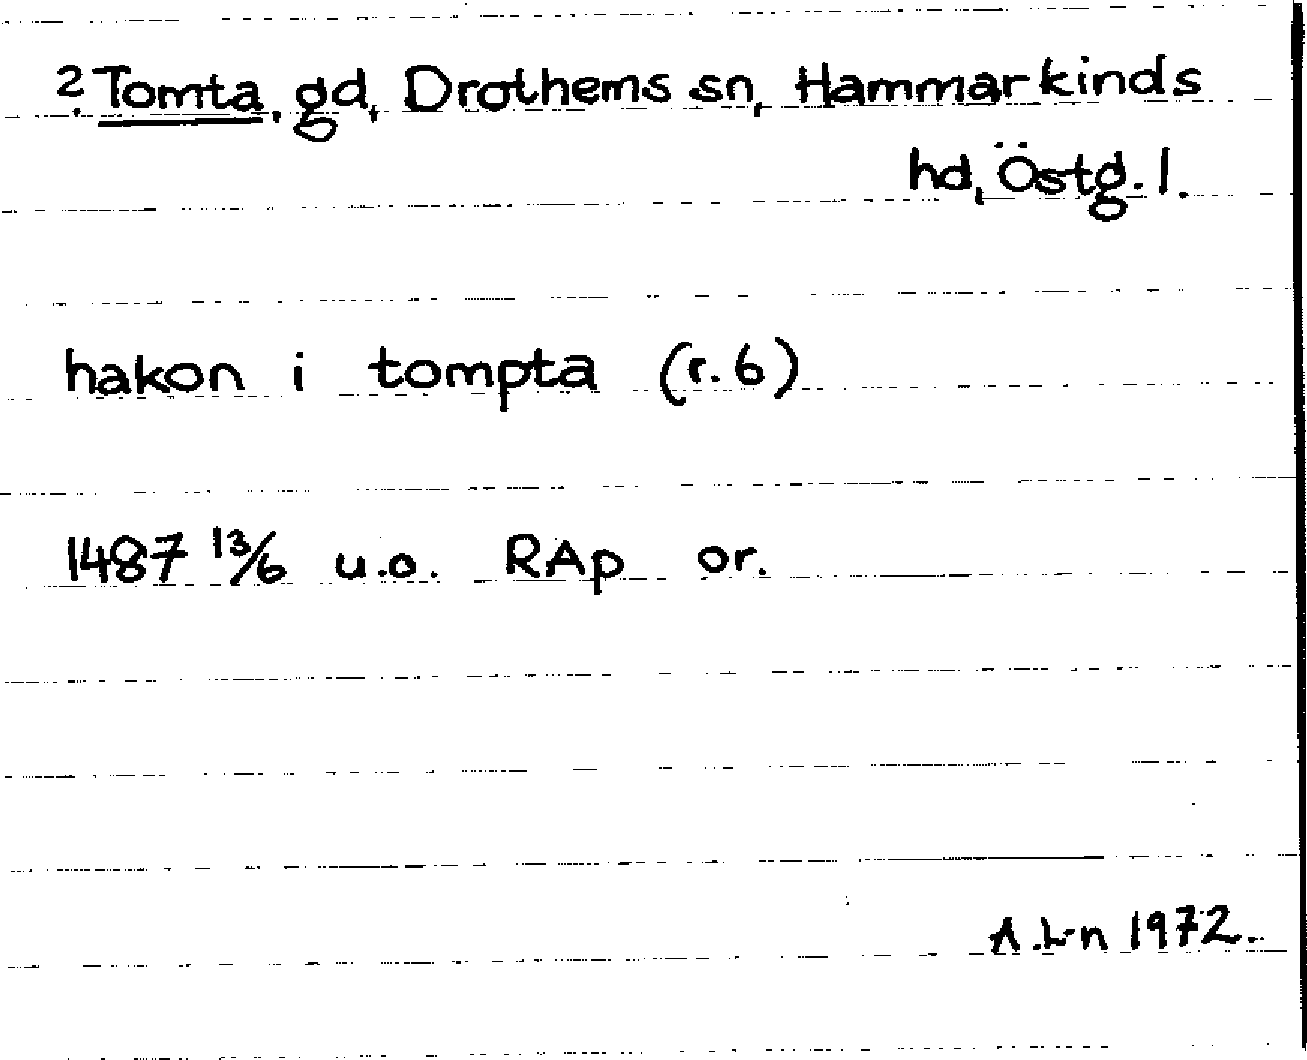 ? Tomta, gd, Drothems sn, Hammarkinds
hd, Östg. l.
hakon i tompta (r. 6)
1487 13/6 u.o. RAp or.
A. L-n 1972.